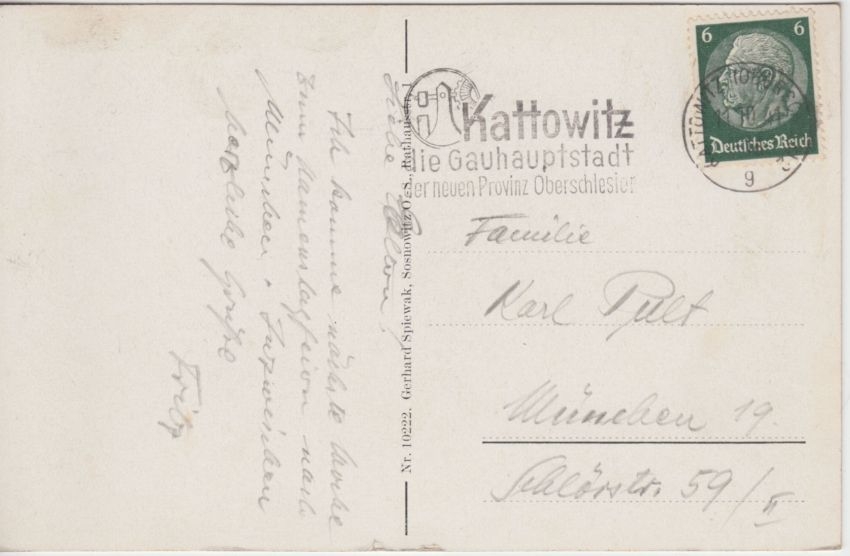 Liebe Eltern!
Ich komme nächste Woche
zum Namenstagfeiern nach
München. Inzwischen
herzliche Grüße
Fritz
Nr. 10222. Gerhard Spiewak, Sosnowitz O.-S., Rathausstr. 1
Kattowitz
die Gauhauptstadt
der neuen Provinz Oberschlesien
6 6
Deutsches Reich
KATTOWITZ
9
Familie
Karl Pült
München 19.
Schlörstr. 59/II